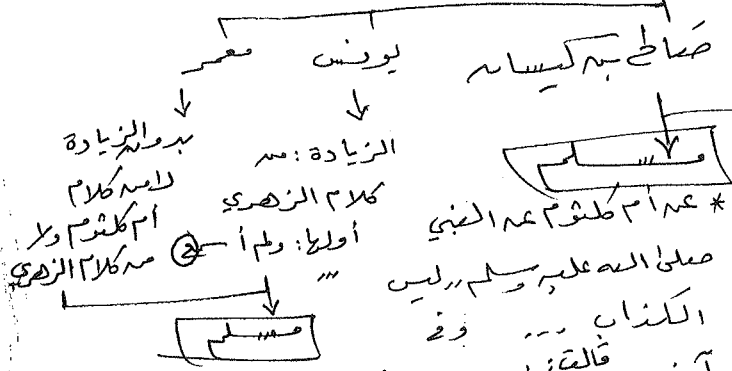 صالح بن كيسان
يونس
معمر
مسلم
* عن أم كلثوم عن النبي
صلى الله عليه وسلم ,, ليس
الكذاب ... وفي
قالت:
الزيادة: من
كلام الزهري
أولها: ولم أ
بدون الزيادة
لا من كلام
أم كلثوم ولا
من كلام الزهري
مسلم